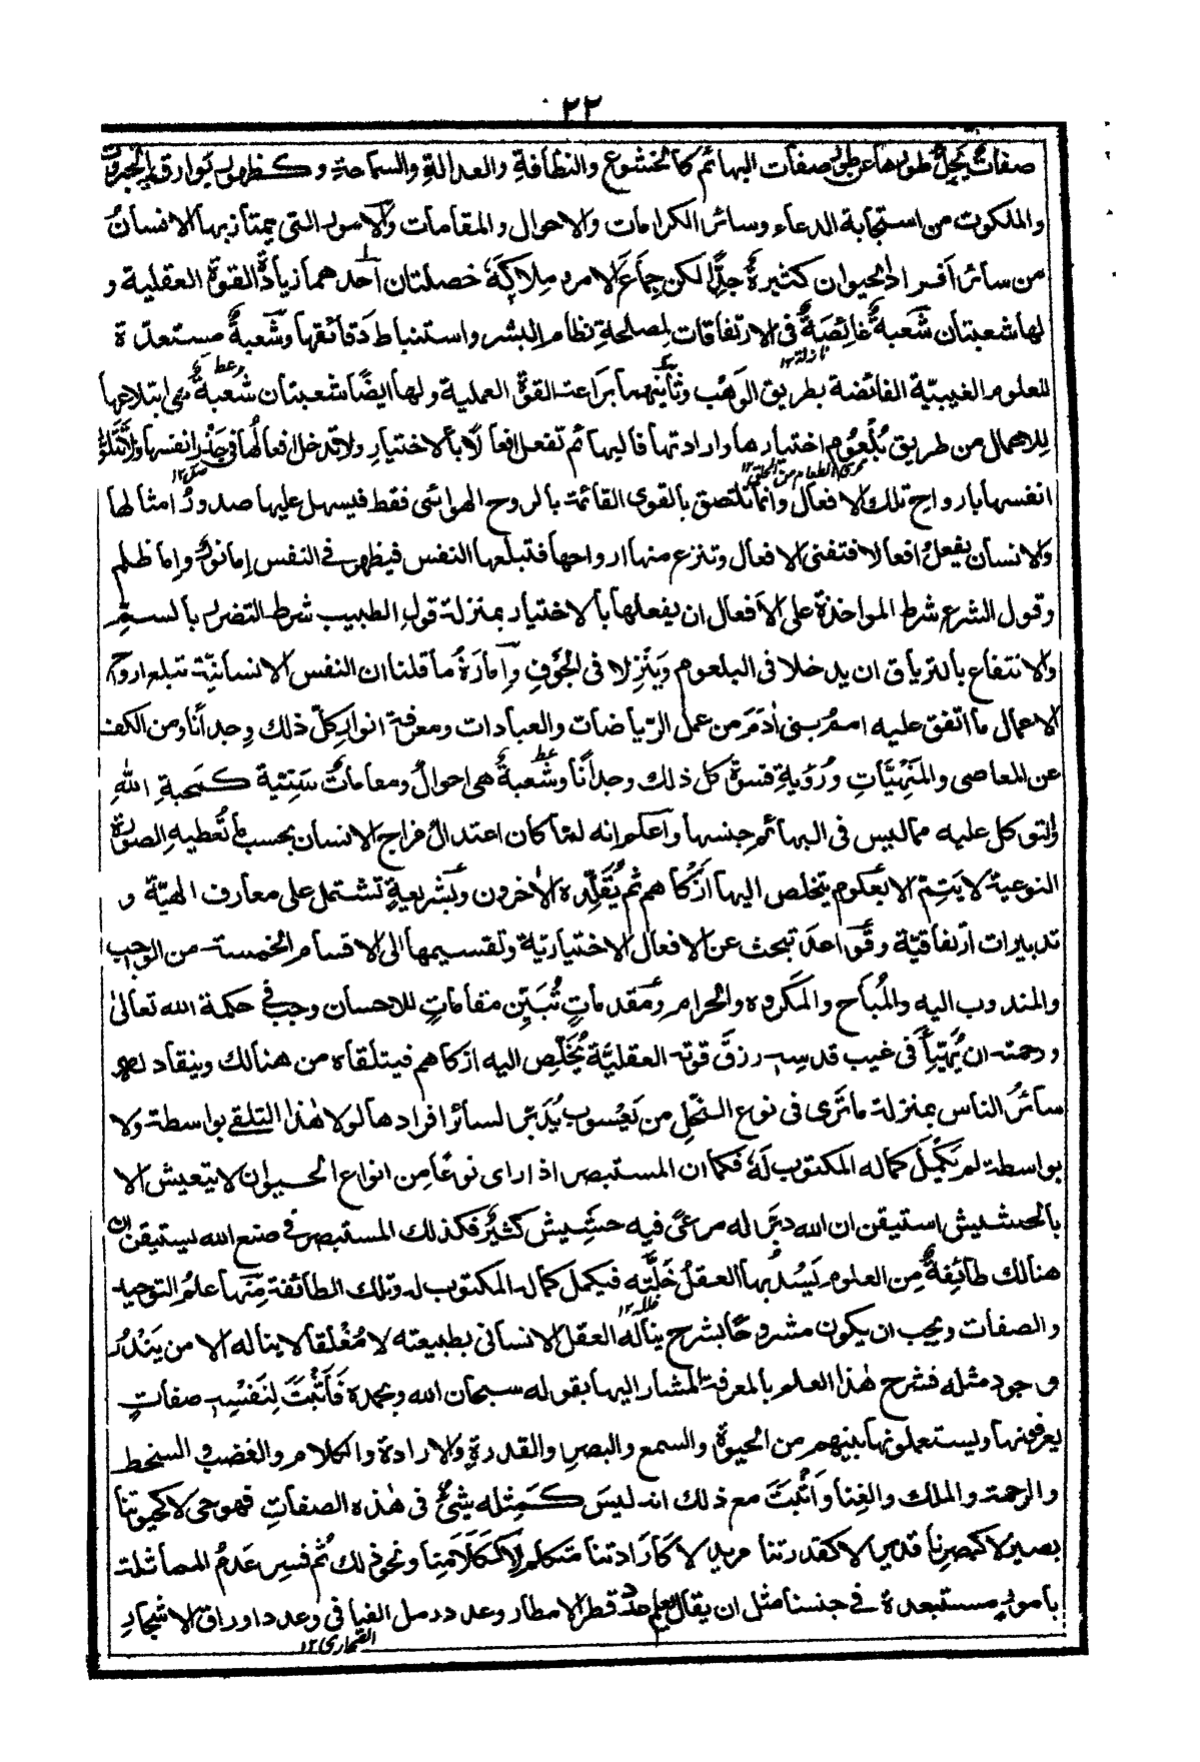 ٢٢
صفاتٌ يجلّ طورها عن طور صفات البهائم كالخشوع والنظافةِ والعدالةِ والسماحةِ وكظهور بوارق الجبروت
والملكوت من استجابة الدعاء وسائر الكرامات والاحوال والمقامات والامور التى يمتاز بها الانسانُ
من سائر افراد الحيوان كثيرةٌ جدًّا لكن جماعَ الامر وملاكَهٗ خصلتان احدهما زيادةُ القوة العقلية و
لها شعبتان شعبةٌ غائصةٌ فى الارتفاقات لمصلحةِ نظام البشر واستنباط دقائقها وشعبةٌ مستعدّة
للعلوم الغيبيّة الفائضة بطريق الوَهْب وثانيهما براعة القوة العملية ولها ايضًا شعبتان شعبةٌ هى ابتلاعها
للاعمال من طريق بُلْعُوم اختيارها وارادتها فالبهائم تفعل افعالًا بالاختيار ولا تدخل افعالُها فى جَذْر انفسها ولا تتلوّن
انفسها بارواح تلك الافعال وانما تلتصق بالقوى القائمة بالروح الهوائى فقط فيسهل عليها صدورُ امثالها
والانسان يفعلُ افعالا فتفنى الافعال وتنزع منها ارواحها فتبلعها النفس فيظهر فى النفس إما نورٌ وإما ظلم
وقول الشرع شرط المواخذة على الافعال ان يفعلها بالاختيار بمنزلة قول الطبيب شرط التضرر بالسمّ
والانتفاع بالترياق ان يدخلا فى البلعوم وينزلا فى الجوف وأمارَةُ ما قلنا ان النفس الانسانيّة تبلع ارواح
الاعمال ما اتفق عليه امم بنى اٰدم من عمل الرّياضات والعبادات ومعرفة انوار كلّ ذلك وجدانًا ومن الكف
عن المعاصى والمنهيّاتِ ورؤيةِ قسوة كل ذلك وجدانًا وشعبةٌ هى احوالٌ ومقاماتٌ سَنِيّة كمحبةِ اللهِ
والتوكل عليه مما ليس فى البهائم جنسها واعلم انه لما كان اعتدالُ مزاج الانسان بحسب ما تُعطيه الصورة
النوعية لا يَتِمّ الا بعُلوم يتخلص اليها أزكاهم ثم يُقلّده الاٰخرون وبشريعةٍ تشتمل على معارف الٰهيّة و
تدبيرات ارتفاقيّة وقواعد تبحث عن الافعال الاختياريّة وتقسيمها الى الاقسام الخمسة من الواجب
والمندوب اليه والمُباح والمكروه والحرام ومقدماتٍ تُبَيّن مقاماتٍ للاحسان وجب فى حكمة الله تعالىٰ
ورحمته ان يُهَيّئَ فى غيب قدسه رزق قوته العقليّة يُخَلّص اليه ازكاهم فيتلقاه من هنالك وينقاد لهم
سائرُ الناس بمنزلة ما ترى فى نوع النّحل من يَعْسوب يُدَبّر لسائر افرادها لولا هٰذا التلقى بواسطة ولا
بواسطة لم يَكْمِل كماله المكتوب لهٗ فكما ان المستبصر اذا راى نوعًا من انواع الحيوان لا يتعيش الا
بالحشيش استيقن ان الله دبّر له مرعًى فيه حشيش كثيرٌ فكذلك المستبصر فى صنع الله يستيقن ان
هنالك طائفةٌ من العلوم يَسُدّ بها العقلُ خَلّته فيكمل كماله المكتوب له وتلك الطائفة منها علمُ التوحيد
والصفات ويجب ان يكون مشروحًا بشرح يناله العقل الانسانى بطبيعته لا مُغْلقا لا يناله الا من يَنْدُر
وجود مثله فشرح هٰذا العلم بالمعرفة المشار اليها بقوله سبحان الله وبحمده فَأَثْبَتَ لِنَفْسِه صفاتٍ
يعرفونها ويستعملونها بينهم من الحيٰوة والسمع والبصر والقدرة والارادة والكلام والغضب والسخط
والرحمة والملك والغِنا وأَثْبَتَ مع ذلك انه ليسَ كمثله شيءٌ فى هٰذه الصفاتِ فهو حى لا كحيٰوتنا
بصيرٌ لا كبصرنا قدير لا كقدرتنا مريد لا كارادتنا متكلم لا ككلامنا ونحو ذلك ثم فسر عدمُ المماثلة
بامورٍ مستبعدة فى جنسنا مثل ان يقال يعلم عدد قطر الامطار وعدد رمل الفيافى وعدد اوراق الاشجار